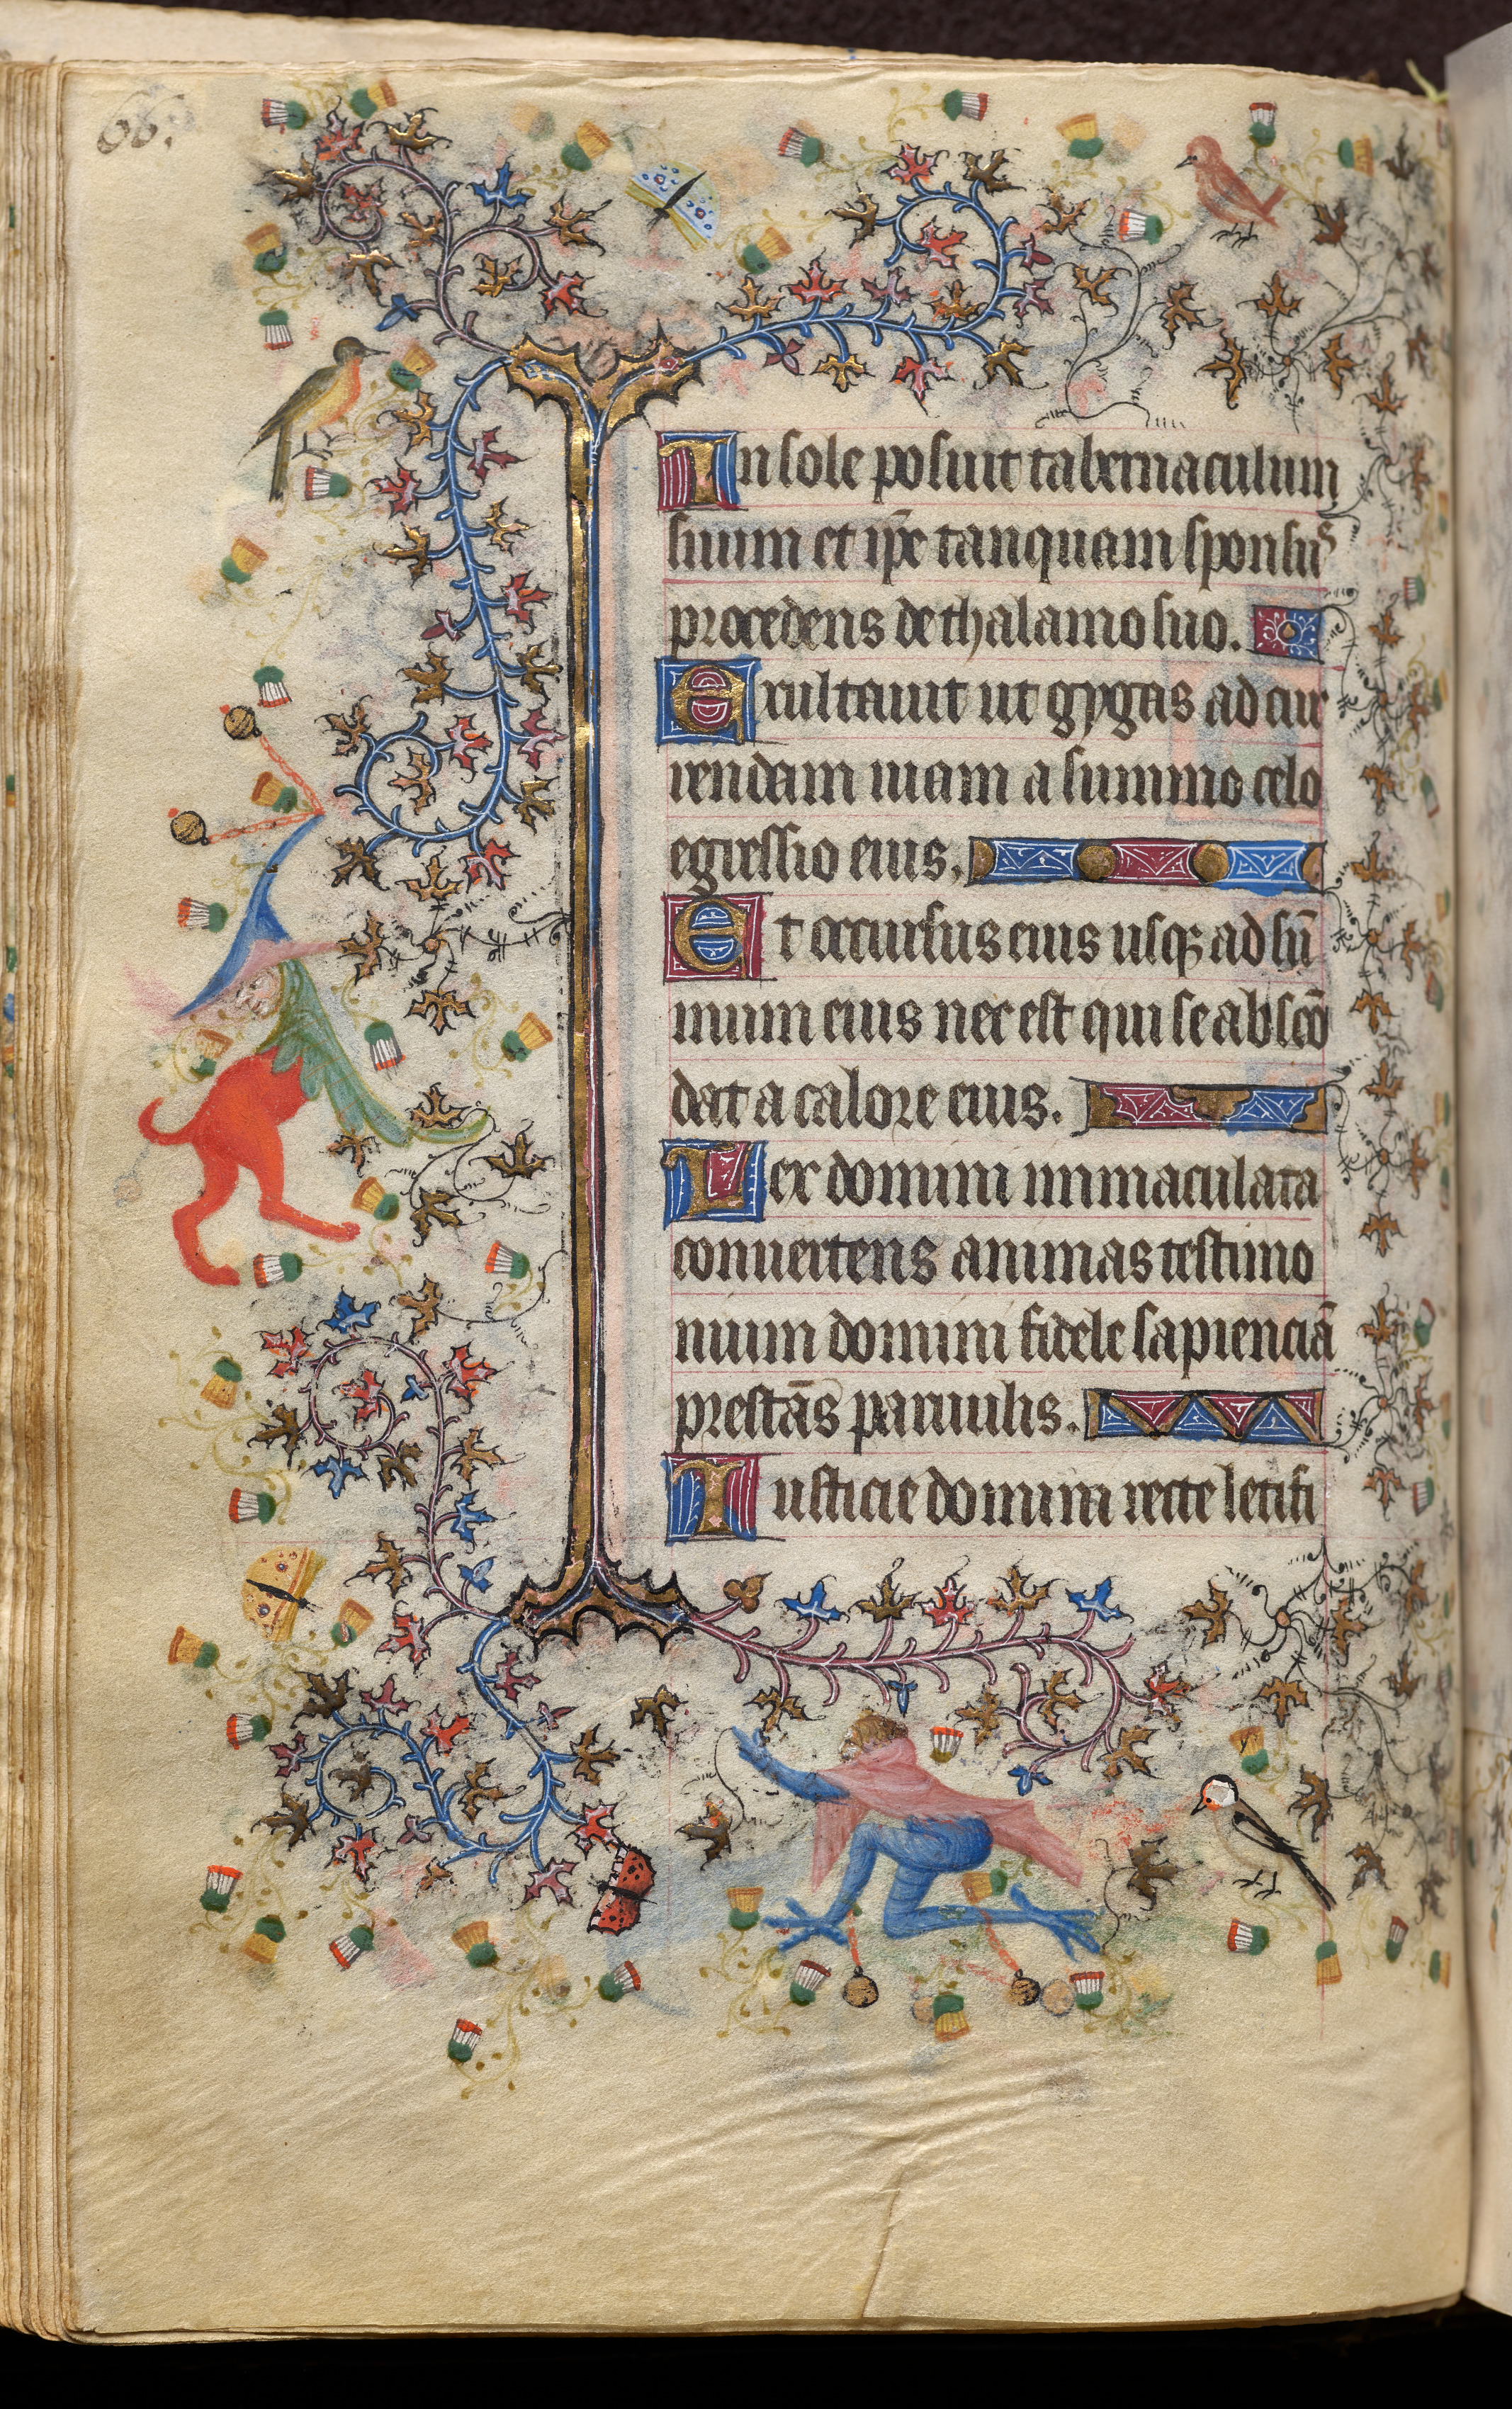 66.
In sole posuit tabernaculum
suum et ip̄e tanquam sponsus
procedens de thalamo suo.
Exultauit ut gygas ad cur
rendam uiam a summo celo
egressio eius.
Et occursus eius usqꝫ ad sū
mum eius nec est qui se abscō
dat a calore eius.
Lex domini inmaculata
conuertens animas testimo
nium domini fidele sapienciā
prestās paruulis.
Iusticie domini recte letifi